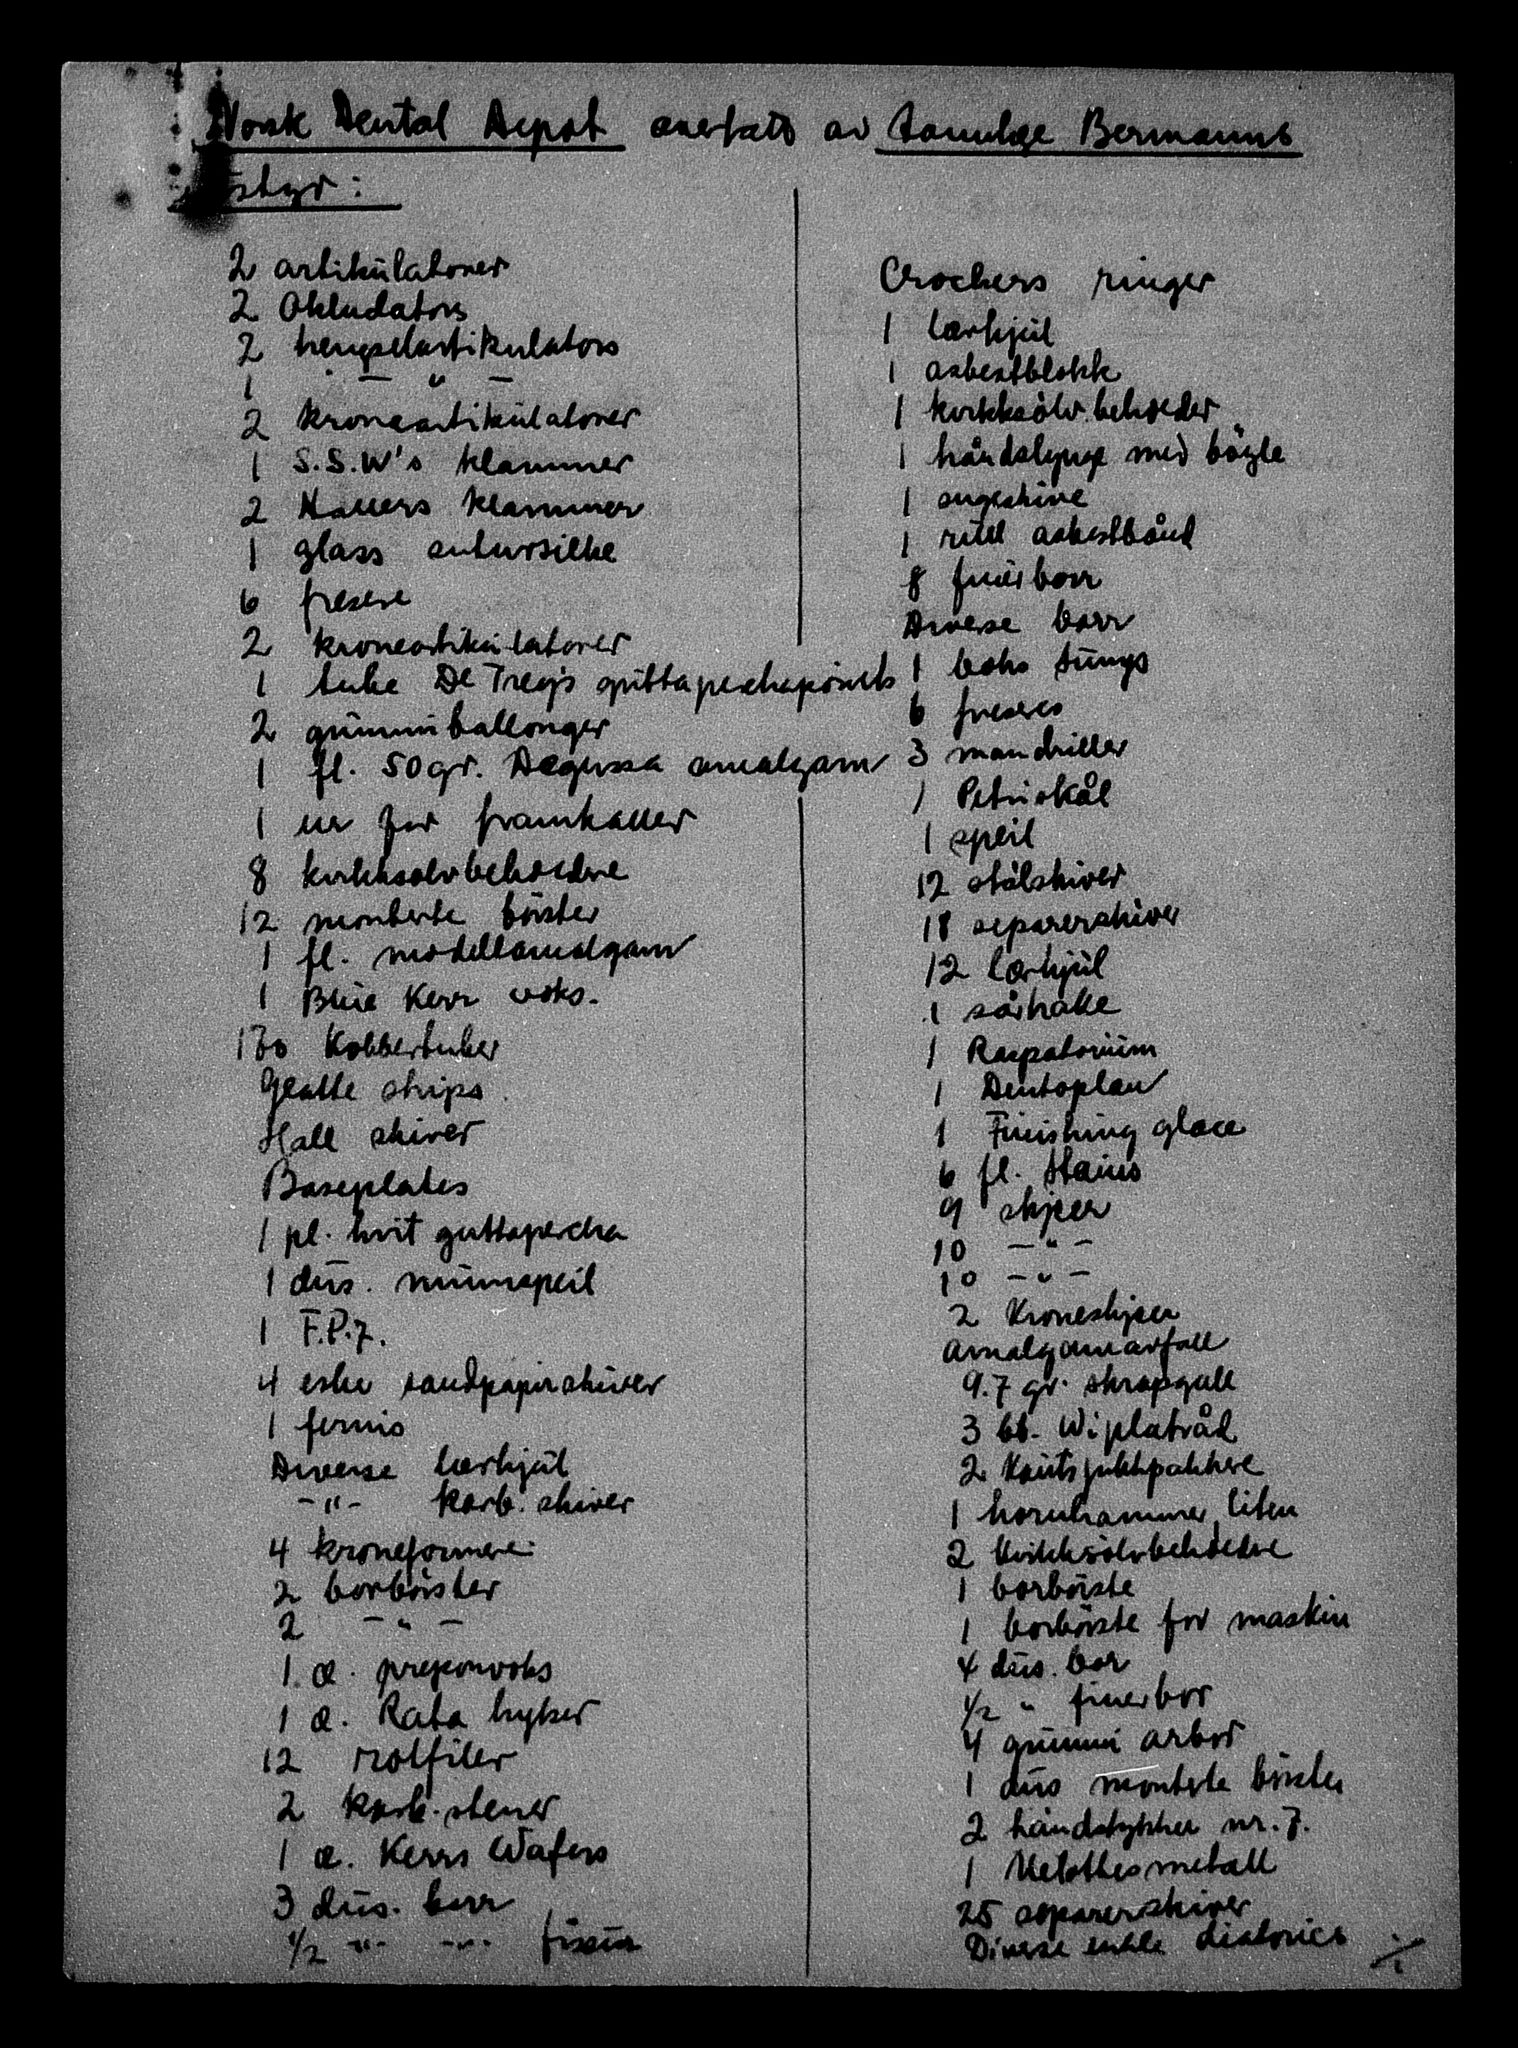 Norsk Dental Depot overtatt av Tannlæge Bermanns
utstyr:
2 artikulatorer
2 Okludators
2 hengselartikulators
1 - " -
2 kroneartikulatorer
1 S.S.W's klammer
2 Hallers klammer
1 glass sutursilke
6 fresere
2 kroneartikulatorer
1 tube De Trey's guttaperchapoints
2 gummiballonger
1 fl. 50gr. Degussa amalgam
1 ur for framkaller
8 kvikksølvbeholdere
12 monterte börster
1 fl. modellamalgam
1 Blue Kerr voks.
170 Kobbertuber
Glatte strips
Hall skiver
Baseplates
1 pl. hvit guttapercha
1 dus. munnspeil
1 F.P.7.
4 eske sandpapirskiver
1 fernis
Diverse lærhjul
-"- karb. skiver
4 kroneformere
2 borbörster
2 - " -
1 æ. preponvoks
1 æ. Rata hylser
12 rotfiler
2 karb. stener
1 æ. Kerrs Wafers
3 dus. borr
1/2 -"- -"- fissur
Crochers ringer
1 lærhjul
1 asbestblokk
1 kvikksølv.beholder
1 håndslynge med bögle
1 sugeskive
1 rull asbestbånd
8 finérborr
Diverse borr
1 boks fungs
6 freseres
3 mandriller
1 Petriskål
1 speil
12 stålskiver
18 separerskiver
12 lærhjul
1 sårhake
1 Raspatorium
1 Dentoplan
1 Finishing glace
6 fl. Stains
9 skjeer
10 - " -
10 - " -
2 Kroneskjeer
Amalgamavfall
9.7 gr. skrapgull
3 bt. Wiplatråd
2 Kautsjukkpakkere
1 hornhammer, liten
2 Kvikksølvbeholdere
1 borbörste
1 borbörste for maskin
4 dus. bor
1/2 " finerbor
4 gummi arbor
1 dus monterte börster
2 håndstykker nr. 7.
1 Melottesmetall
25 separerskiver
Diverse enkle diatorics